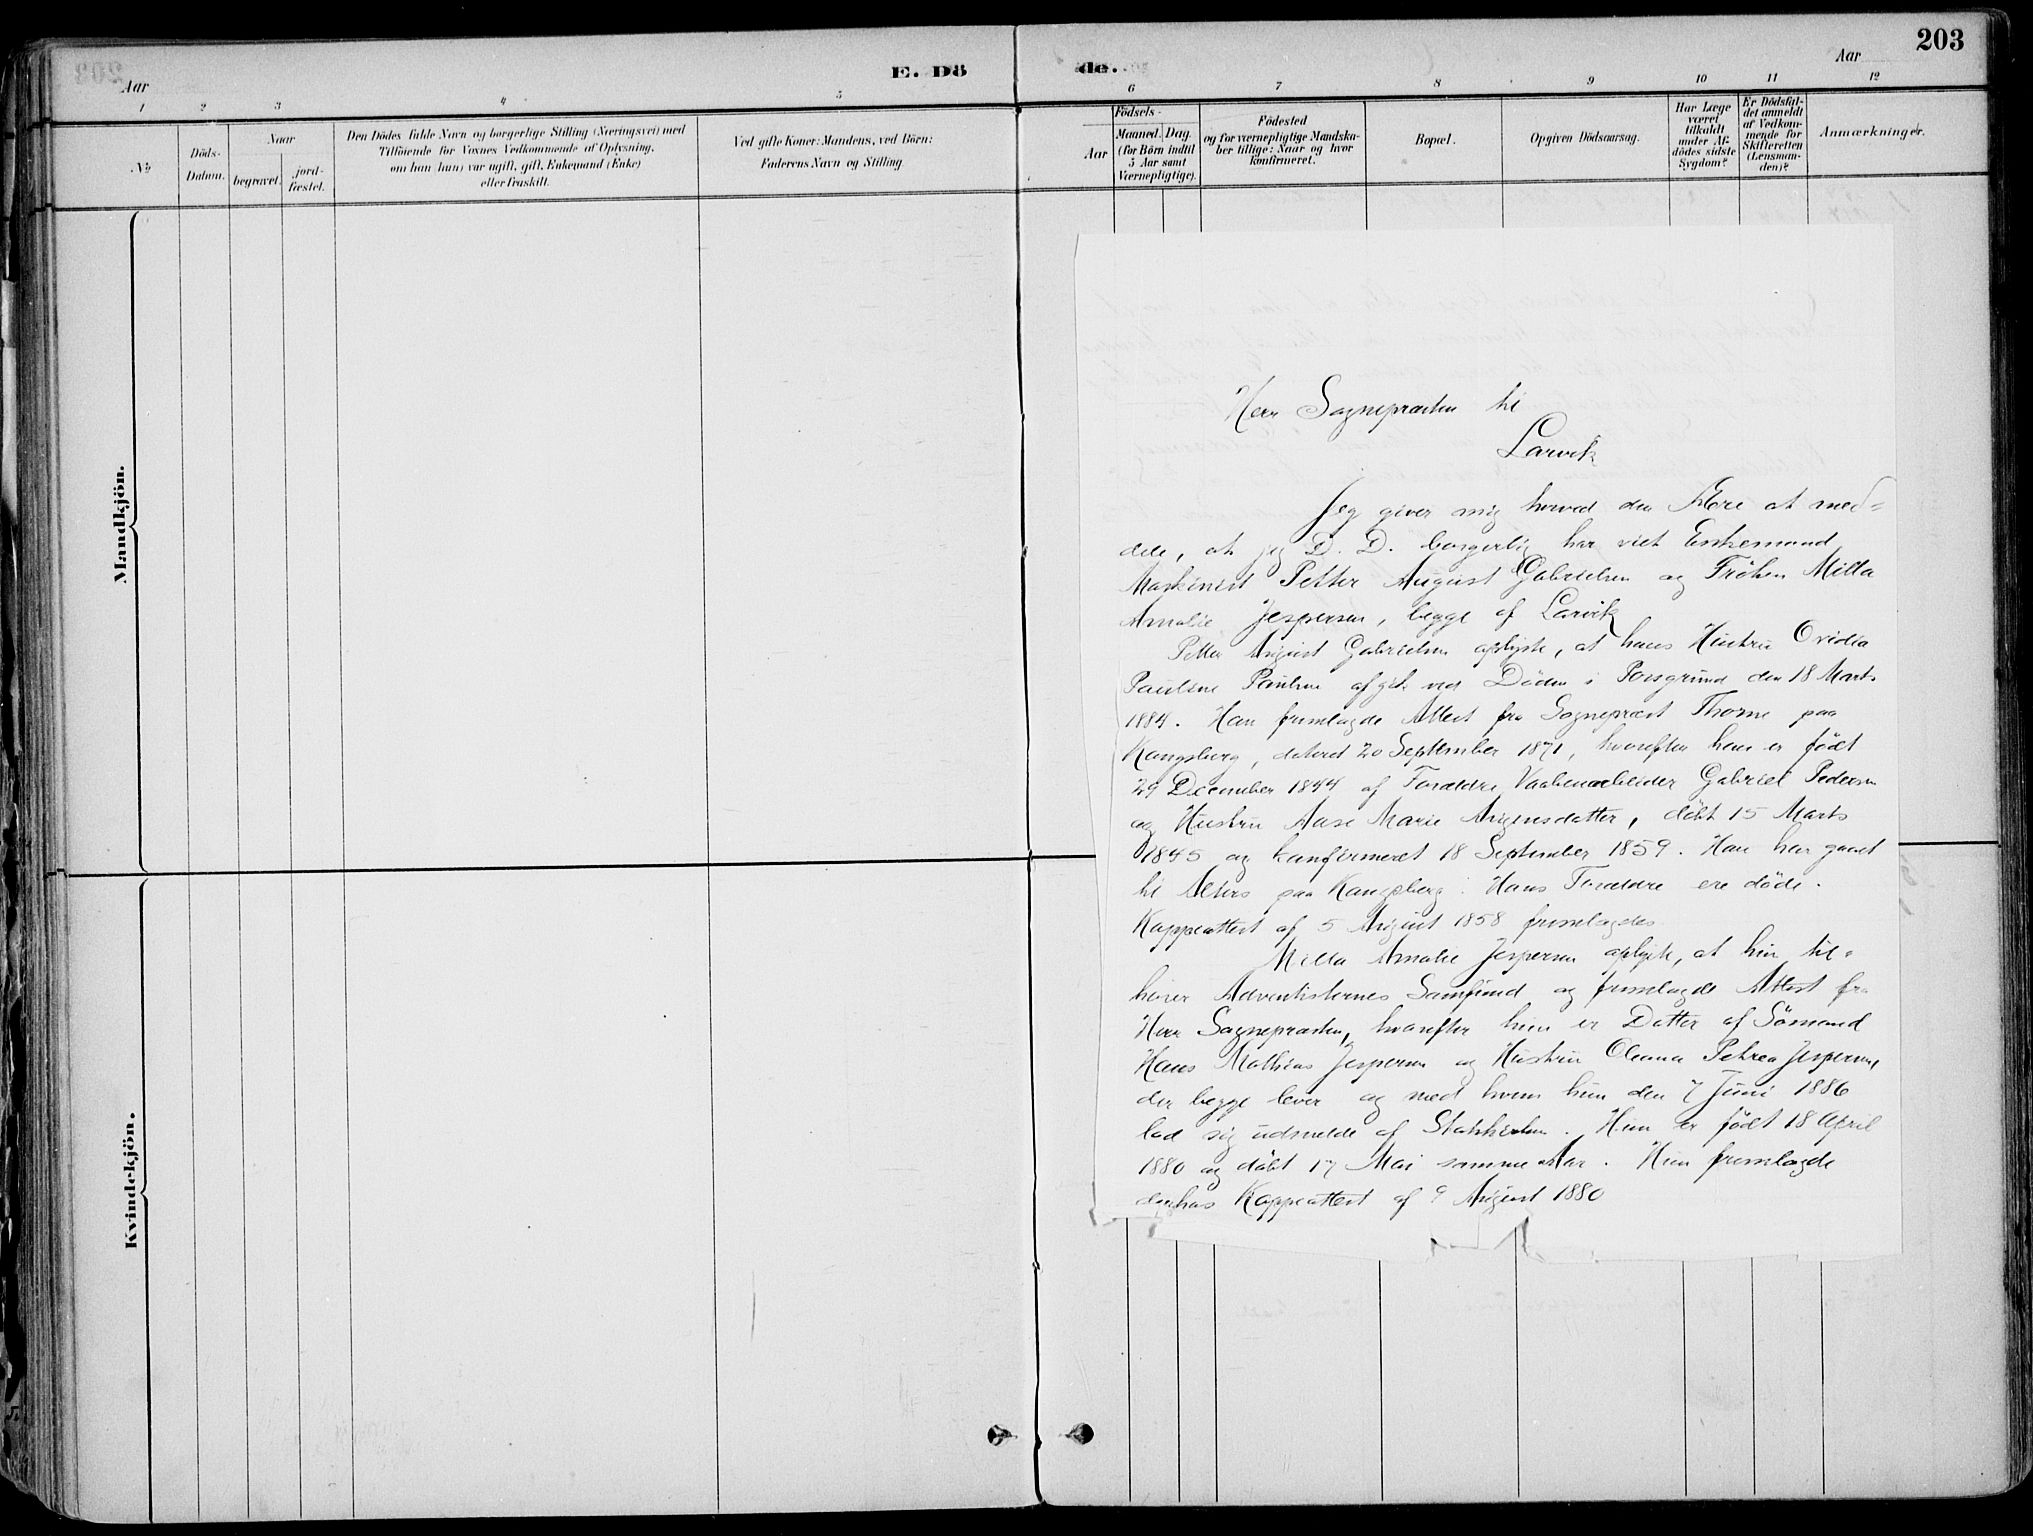 203
E. Döde.
Aar
Aar
1 2 3 4 5 6 7 8 9 10 11 12
No
Döds-Datum.
Naar
begravet.
jord-fæstet.
Den Dödes fulde Navn og borgerlige Stilling (Næringsvei) med
Tilföiende for Voxnes Vedkommende af Oplysning,
om han (hun) var ugift, gift, Enkemand (Enke)
eller fraskilt.
Ved gifte Koner: Mandens, ved Börn:
Faderens Navn og Stilling.
Födsels-
Aar
Maaned. Dag.
(for Börn indtil
5 Aar samt
Værnepligtige).
Födested
og for værnepligtige Mandska-
ber tillige: Naar og hvor
konfirmeret.
Bopæl.
Opgiven Dödsaarsag.
Har Læge
været
tilkaldt
under Af-
dödes sidste
Sygdom?
Er Dödsfal-
det anmeldt
af Vedkom-
mende for
Skifteretten
(Lensman-
den)?
Anmærkninger.
Mandkjön.
Kvindekjön.
Herr Sognepræsten til
Larvik
Jeg giver mig herved den Ære at med=
dele, at jeg D. D. borgerlig har viet Enkemand
Maskinist Petter August Gabrielsen og Frøken Milla
Amalie Jespersen, begge af Larvik
Petter August Gabrielsen oplyste, at hans Hustru Ovidia
Pauline Paulsen afgik ved Døden i Porsgrund den 18 Marts
1884. Han fremlagde Attest fra Sognepræst Thorne paa
Kongsberg, dateret 20 September 1871, hvorefter han er født
29 December 1844 af Forældre Vaabenarbeider Gabriel Pedersen
og Hustru Anse Marie Mogensdatter, døbt 15 Marts
1845 og konfirmeret 18 September 1859. Han har gaaet
til Alters paa Kongsberg. Hans Forældre ere døde.
Koppeattest af 5 August 1858 fremlagdes
Milla Amalie Jespersen oplyste, at hun til=
hører Adventisternes Samfund og fremlagde Attest fra
Herr Sognepræsten, hvorefter hun er Datter af Sømand
Hans Mathias Jespersen og Hustru Oleana Petrea Jespersen,
der begge lever og med hvem hun den 7 Juni 1886
lod sig udmelde af Statskirken. Hun er født 18 April
1880 og døbt 17 Mai samme Aar. Hun fremlagde
derhos Koppeattest af 9 August 1880